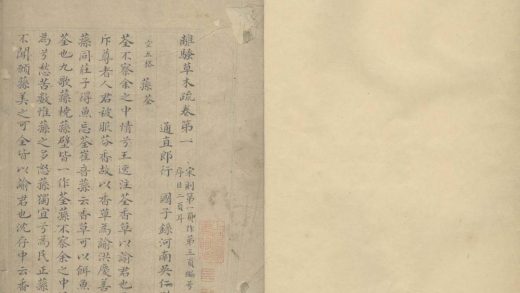 離騷草木疏卷第一
宋刻第一頁作第三頁編号
序目二頁
通直郎行 國子錄河南吳仁
空五格 蓀荃
荃不察余之中情兮王逸注荃香草以諭君也
斥尊者人君被服芬香故以香草為諭洪慶善
蓀同莊子得魚忘荃崔音蓀云香草可以餌魚
荃也九歌蓀橈蓀壁皆一作荃蓀不察余之中
為兮愁苦數惟蓀之多怒蓀獨宜兮為民正蓀
不聞願蓀美之可全皆以諭君也沈存中云香